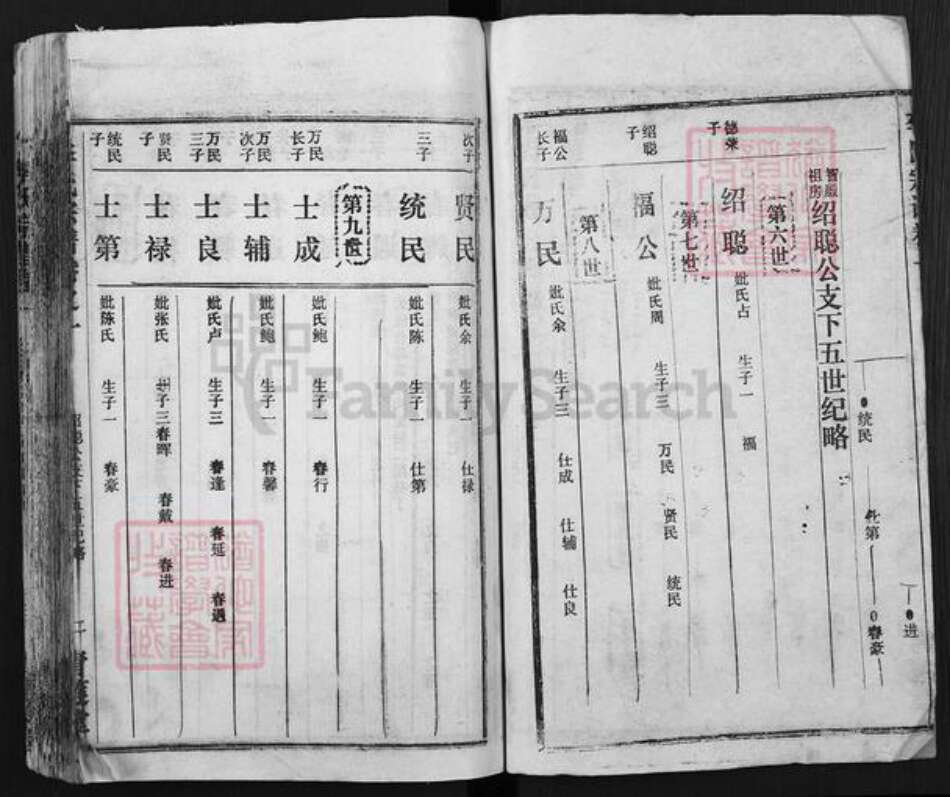 统民
仕第
春豪
进
智殿祖房
绍聪公支下五世纪略
第六世
德荣子
绍聪
妣氏占
生子一
福
第七世
绍聪子
福公
妣氏周
生子三
万民
贤民
统民
第八世
福公长子
万民
妣氏余
生子三
仕成
仕辅
仕良
次子
贤民
妣氏余
生子一
仕禄
三子
统民
妣氏陈
生子一
仕第
第九世
万民长子
士成
妣氏鲍
生子一
春行
万民次子
士辅
妣氏鲍
生子一
春馨
万民三子
士良
妣氏卢
生子三
春逢
春延
春遇
贤民子
士禄
妣张氏
生子三
春晖
春戴
春进
统民子
士第
妣陈氏
生子一
春豪
FamilySearch